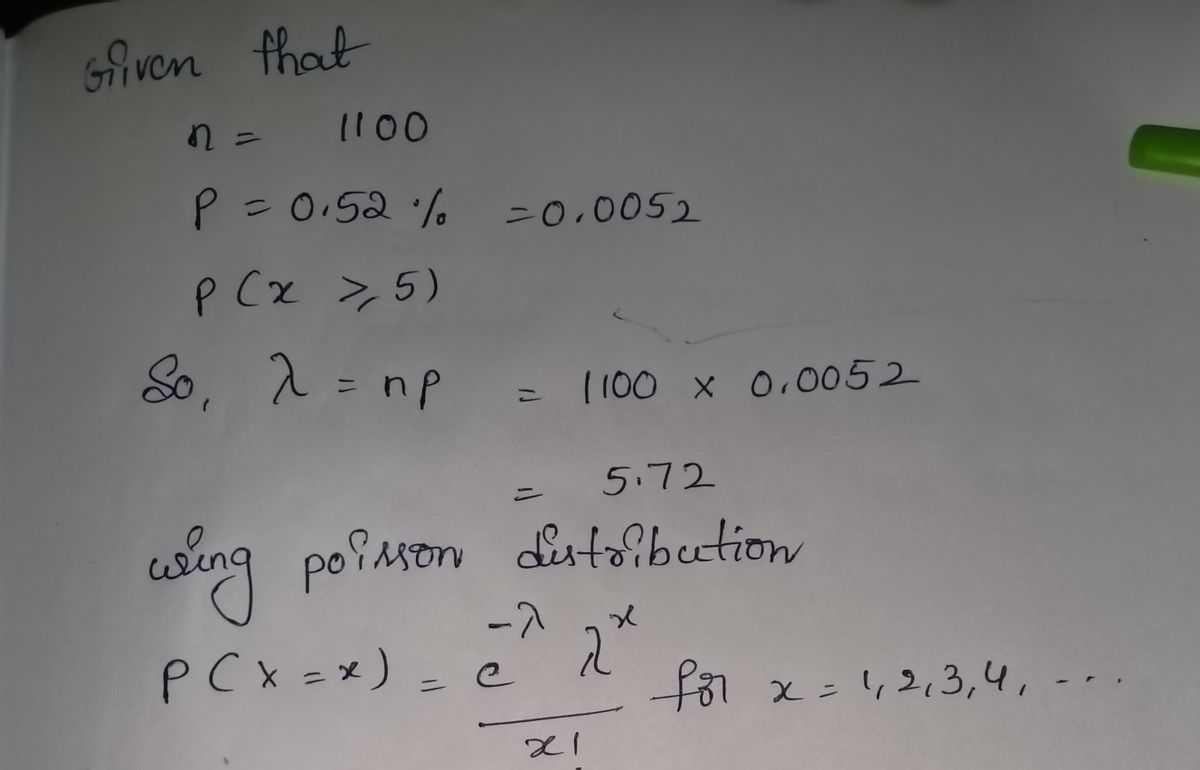 Given that
n = 1100
P = 0.52 % = 0.0052
P(x ≥ 5)
So, λ = np = 1100 x 0.0052
= 5.72
using poisson distribution
P(X = x) = e^-λ λ^x / x! for x = 1, 2, 3, 4, ...